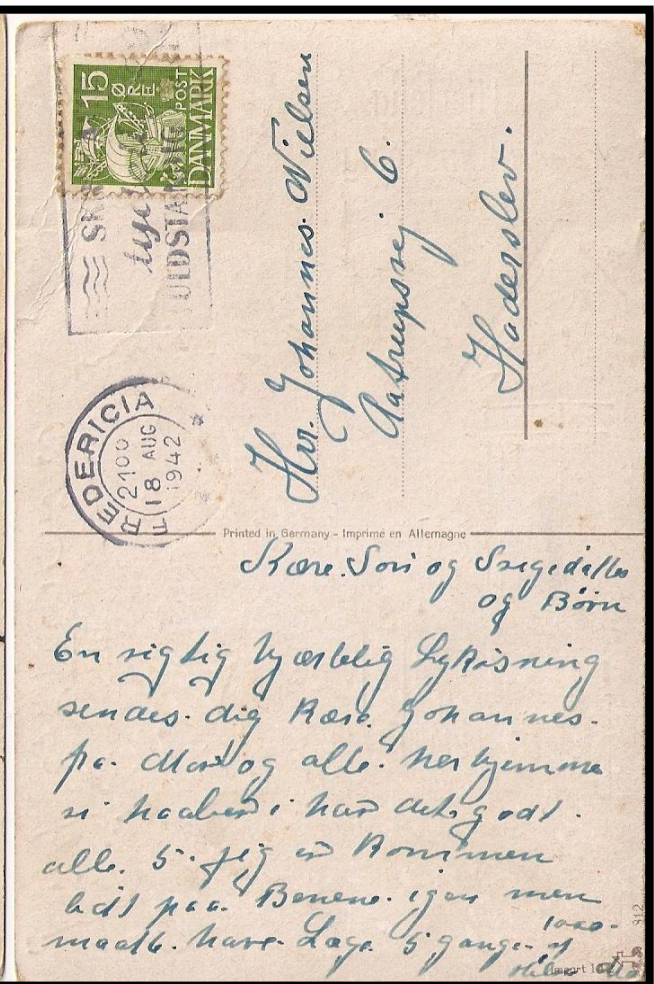 15
ØRE
POST
DANMARK
FREDERICIA
2100
18 AUG
1942
Hrr. Johannes Nielsen
Aastrupvej 6.
Haderslev.
Printed in Germany - Imprimé en Allemagne
Kære Søn og
og Børn
En rigtig hjærtelig Lykøisning
sendes dig Kære Johannes.
fra Mor og alle her hjemme
vi haaber i har det godt.
alle 5. jeg er kommen
lidt paa Benene igen men
maatte have Læge 5 gange.
1000-
Hilsen Mor
912